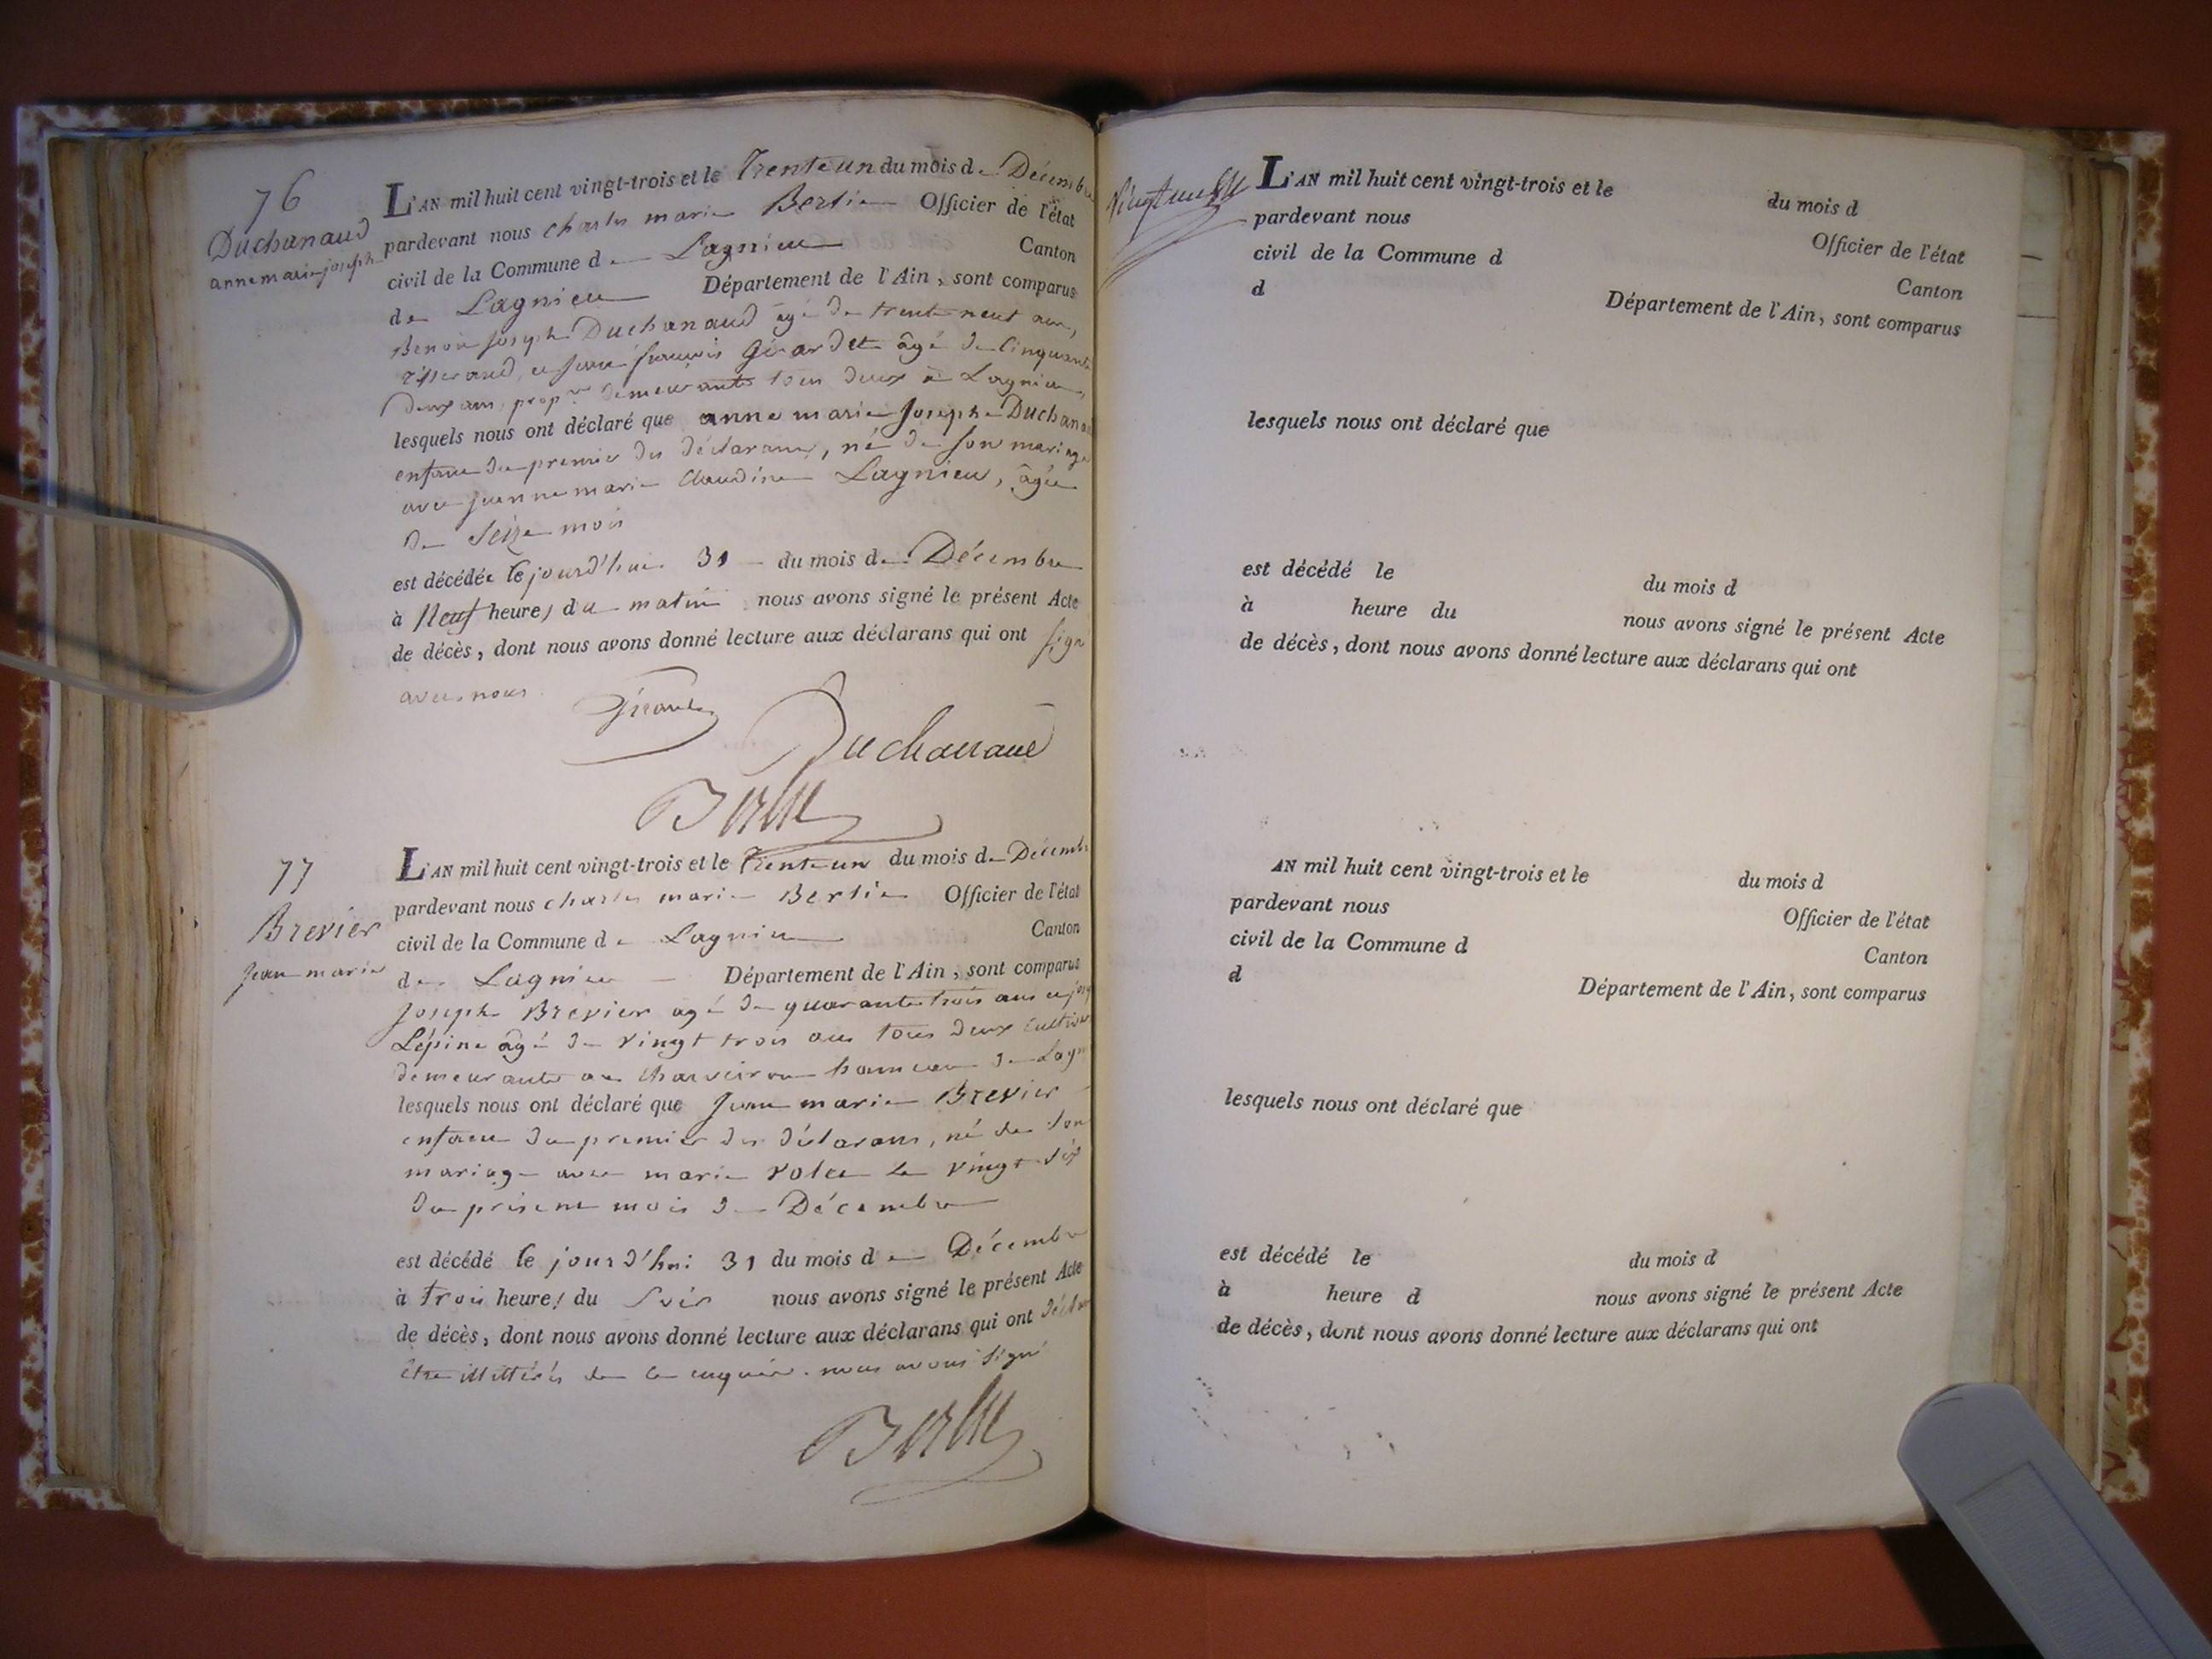 76
Duchanaud
anne marie josephe
L'AN mil huit cent vingt-trois et le Trente un du mois de Décembre
pardevant nous Charles marie Bertie Officier de l'état
civil de la Commune de Lagnieu Canton
de Lagnieu Département de l'Ain, sont comparus
Benoit Joseph Duchanaud âgé de trente neuf ans,
Tisserand, et jean françois Girardet âgé de Cinquante
Deux ans, propre demeurants tous deux à Lagnieu,
lesquels nous ont déclaré que anne marie Josephe Duchanaud
enfant du premier des déclarans, né de son mariage
avec jeanne marie Claudine Lagnieu, âgée
de Seize mois
est décédée le jourd'hui 31 du mois de Décembre
à Neuf heures du matin nous avons signé le présent Acte
de décès, dont nous avons donné lecture aux déclarans qui ont signé
avec nous
Duchanaud
77
Brevier
jean marie
L'AN mil huit cent vingt-trois et le Trente un du mois de Décembre
pardevant nous charles marie Bertie Officier de l'état
civil de la Commune de Lagnieu Canton
de Lagnieu Département de l'Ain, sont comparus
Joseph Brevier agé de quarante trois ans et
Lépine âgé de vingt trois ans tous deux cultivateurs
demeurants au hameau de Lagnieu
lesquels nous ont déclaré que Jean marie Brevier
enfant du premier des déclarans, né de son
mariage avec marie le vingt six
du présent mois de Décembre
est décédé le jourd'hui 31 du mois de Décembre
à trois heures du Soir nous avons signé le présent Acte
de décès, dont nous avons donné lecture aux déclarans qui ont déclaré
être illittérés de ce enquis. nous avons signé
L'AN mil huit cent vingt-trois et le du mois d
pardevant nous Officier de l'état
civil de la Commune d Canton
d Département de l'Ain, sont comparus
lesquels nous ont déclaré que
est décédé le du mois d
à heure du nous avons signé le présent Acte
de décès, dont nous avons donné lecture aux déclarans qui ont
AN mil huit cent vingt-trois et le du mois d
pardevant nous Officier de l'état
civil de la Commune d Canton
d Département de l'Ain, sont comparus
lesquels nous ont déclaré que
est décédé le du mois d
à heure d nous avons signé le présent Acte
de décès, dont nous avons donné lecture aux déclarans qui ont